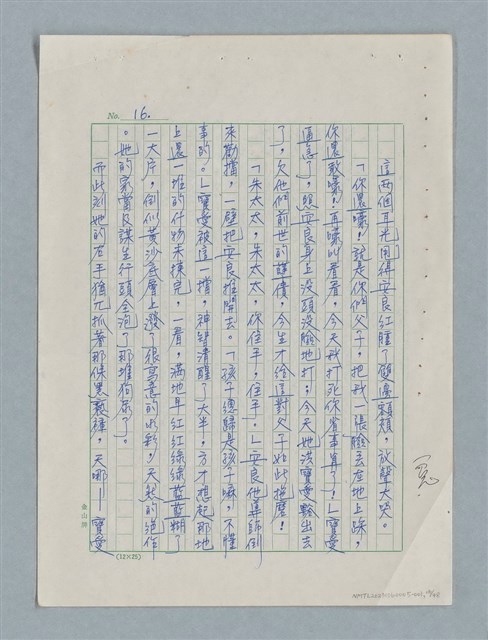 No. 16.
這兩個耳光用得安良紅腫了雙邊頰,放聲大哭。
「你還嚎,就是你們父子,把我一張臉丟在地上踩,
你還敢嚎!再嚎叫看看,今天我打死你省事算了!」寶愛
逼急了,照安良身上沒頭沒臉地打;今天她洪寶愛豁出去
了,欠他們前世的誰債,今生才給這對父子如此拖磨!
「朱太太,朱太太,你住手,住手。」安良他導師倒
來勸擋,一壁把安良推開去。「孩子總歸是孩子嘛,不懂
事的。」寶愛被這一擋,神智清醒了大半,方才想起那地
上還一堆的什物未揀完,一看,滿地早紅紅綠綠藍藍糊了
一大片,倒似黃沙底層上潑了很寫意的水彩,天製的絕作
。她的家當及謀生行頭全泡了那堆狗尿了。
而此刻她的右手猶兀抓著那保黑裂褲,天哪!寶愛
冤
金山牌
(12×25)